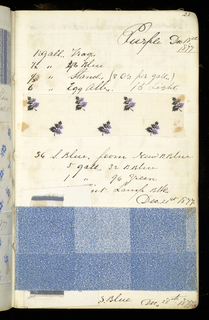 Purple Dec 12th
1877
1 gall. Trag
1/2 " Blue
" Stand. (8 Oz per gall)
6 " Egg Alb. Light
36 S. Blue, from New B Blue
5 gall. 32 B Blue
1 " 96 Green
Tint Lamp Blk
Dec 21st 1877
S. Blue Dec. 18th 1877